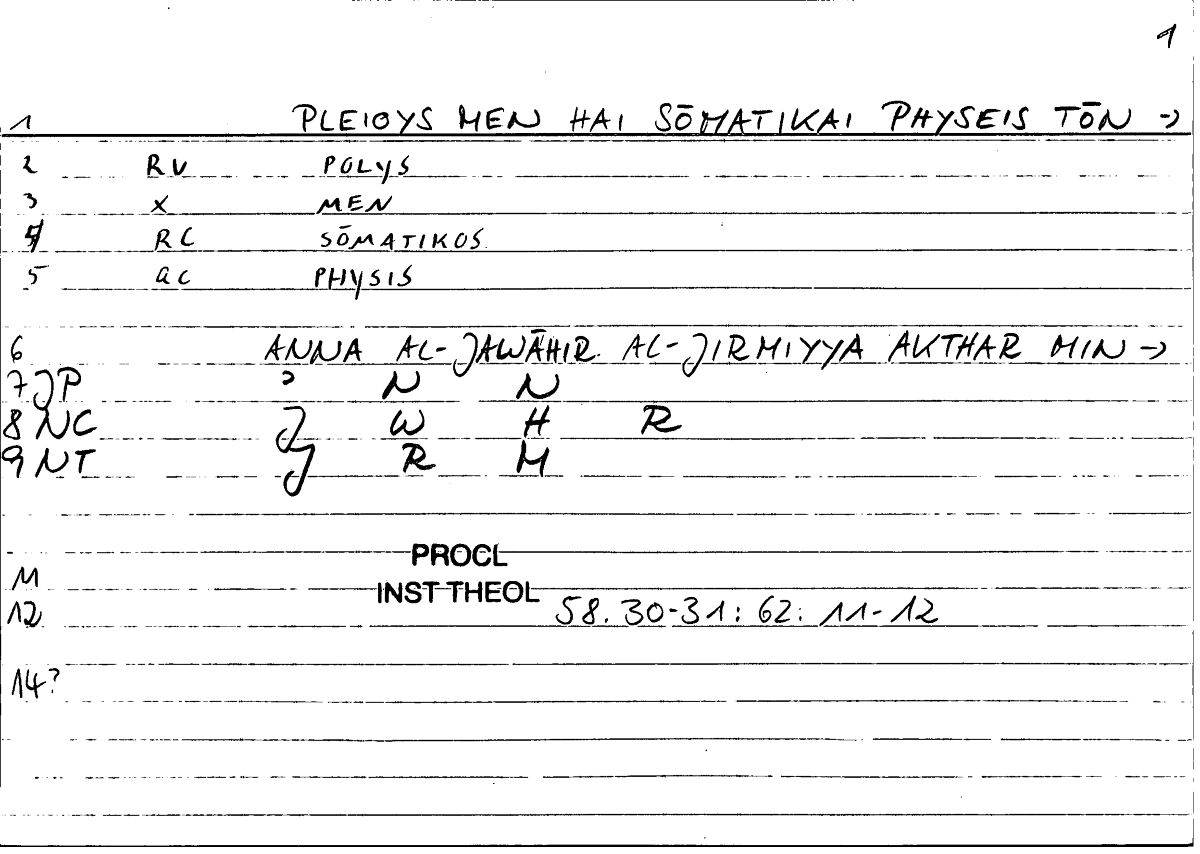 1
1 PLEIOYS MEN HAI SŌMATIKAI PHYSEIS TŌN →
2 RV POLYS
3 X MEN
4 RC SŌMATIKOS
5 QC PHYSIS
6 ANNA AL-JAWĀHIR AL-JIRMIYYA AKTHAR MIN →
7 JP ʾ N N
8 NC J W H R
9 NT J R M
PROCL
11 INST THEOL
12 58. 30-31: 62: 11-12
14?